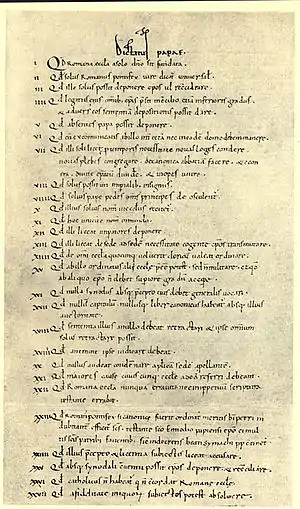 Dictatus papae.
I Qd Romana eccla a solo dno sit fundata.
II Qd solus Romanus pontifex iure dicat universal.
III Qd ille solus possit deponere epos ul reconciliare.
IIII Qd legatus eius omib; epis presit in concilio etia inferioris gradus
& adversus eos sententia depositionis possit dare.
V Qd absentes papa possit deponere.
VI Qd cu excommunicatis ab illo int cetera nec in eade domo debem manere.
VII Qd illi soli licet p temporis necessitate novas leges condere
novas plebes congregare
canonica abbatia facere & econ
tra divite episcopatu dividere & inopes unire.
VIII Qd solus possit uti imperialib; insigniis.
VIIII Qd solius pape pedes oms principes deosculent.
X Qd illius solius nom in eccliis recitet.
XI Qd hoc unicu e nom in mundo.
XII Qd illi liceat imperatores deponere.
XIII Qd illi liceat de sede ad sede necessitate cogente epos transmutare.
XIIII Qd de omi eccla quocunq; voluerit clericu valeat ordinare.
XV Qd ab illo ordinatus alii eccle pee potest sed n militare et qd
ab aliquo epo n debet superiore gradu accipe.
XVI Qd nulla synodus absq; pcepto eius debet generalis vocari.
XVII Qd nullu capitulu nullusq; liber canonicus habeat absq; illius
auctoritate.
XVIII Qd sententia illius a nullo debeat retractari et ipse omium
solus retractare possit.
XVIIII Qd a nemine ipse iudicari debeat.
XX Qd nullus audeat condemnare aplica sede apellante.
XXI Qd maiores cause cuiuscunq; eccle ad ea referri debeant.
XXII Qd Romana eccla nunqua erravit nec inppetuu scriptura
testante errabit.
XXIII Qd Romanus pontifex si canonice fuerit ordinatus meritis b petri in
dubitant effici scs testante sco Ennodio papiensi epo ei mul
tis scis patrib; faventib; sic in decretis beati symachi pp continet.
XXIIII Qd illius pcepto & licentia subiectis liceat accusare.
XXV Qd absq; synodali conventu possit epos deponere & reconciliare.
XXVI Qd catholicus n habeat q n concordat Romane eccle.
XXVII Qd a fidelitate iniquoru subiectos potest absolvere.